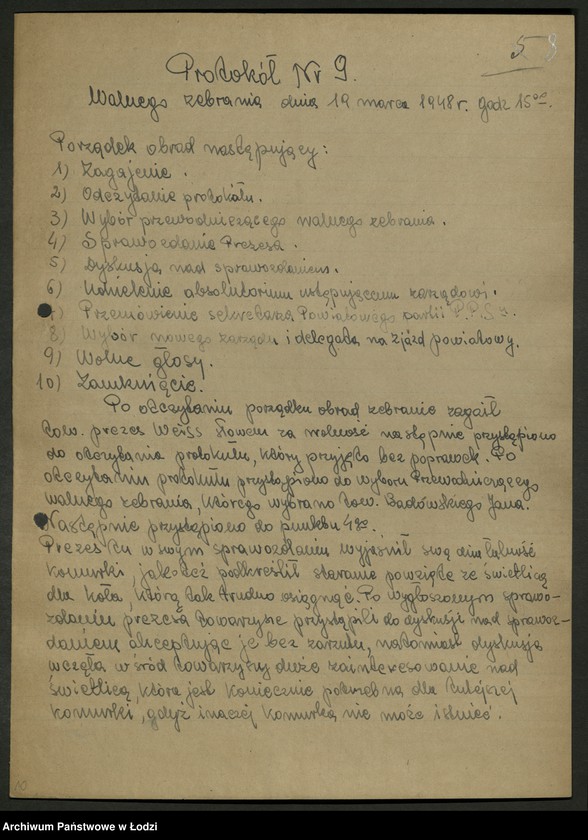 5
Protokół Nr 9.
Walnego zebrania dnia 19 marca 1948 r. godz 15⁰⁰.
Porządek obrad następujący:
1) Zagajenie.
2) Odczytanie protokułu.
3) Wybór przewodniczącego walnego zebrania.
4) Sprawozdanie Prezesa.
5) Dyskusja nad sprawozdaniem.
6) Udzielenie absolutorium ustępującemu zarządowi.
7) Przemówienie sekretarza Powiatowego partii P.P.S.
8) Wybór nowego zarządu i delegata na zjazd powiatowy.
9) Wolne głosy.
10) Zamknięcie.
Po odczytaniu porządku obrad zebranie zagaił
tow. prezes Weiss słowem za wolność następnie przystąpiono
do odczytania protokułu, który przyjęto bez poprawek. Po
odczytaniu protokułu przystąpiono do wyboru Przewodniczącego
walnego zebrania, którego wybrano tow. Badowskiego Jana.
Następnie przystąpiono do punktu 4go
Prezes w swym sprawozdaniu wyjaśnił swą działalność
komurki, jakoteż podkreślił starania powzięte ze świetlicą
dla koła, którą tak trudno osiągnąć. Po wygłoszonym sprawo-
zdaniu prezesa towarzysze przystąpili do dyskusji nad sprawoz-
daniem akceptując je bez zarzutu, natomiast dyskusja
wzięła wśród towarzyszy duże zainteresowanie nad
świetlicą, która jest koniecznie potrzebna dla tutejszej
komurki, gdyż inaczej komurka nie może istnieć.
10
Archiwum Państwowe w Łodzi